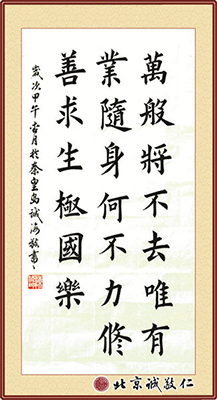 萬般將不去唯有
業隨身何不力修
善求生極國樂
歲次甲午月於秦皇島誠海敬書
北京誠敬仁